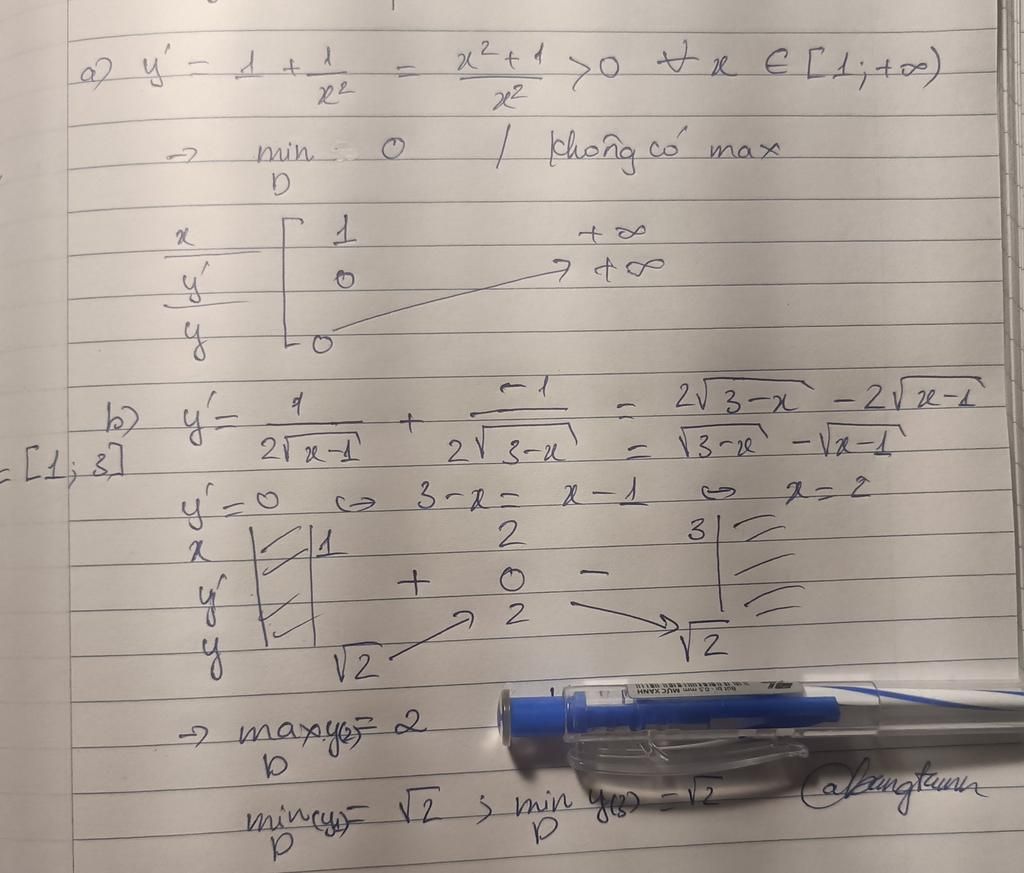 a) y' = 1 + 1/x² = (x² + 1)/x² > 0 ∀ x ∈ [1; +∞)
→ min D = 0 / không có max
x 1 +∞
y' 0 +∞
y 0
b) y' = 1/(2√(3-x)) + -1/(2√(3-x)) = 2√(3-x) - 2√(x-1)
= [1; 3] = √(3-x) - √(x-1)
y' = 0 ⇔ 3-x = x-1 ⇔ x = 2
x 1 2 3
y' + 0 -
y √2 2 √2
→ max D y(2) = 2
min D (y1) = √2 ; min D y(3) = √2
Bút bi - 0.5 mm MỰC XANH